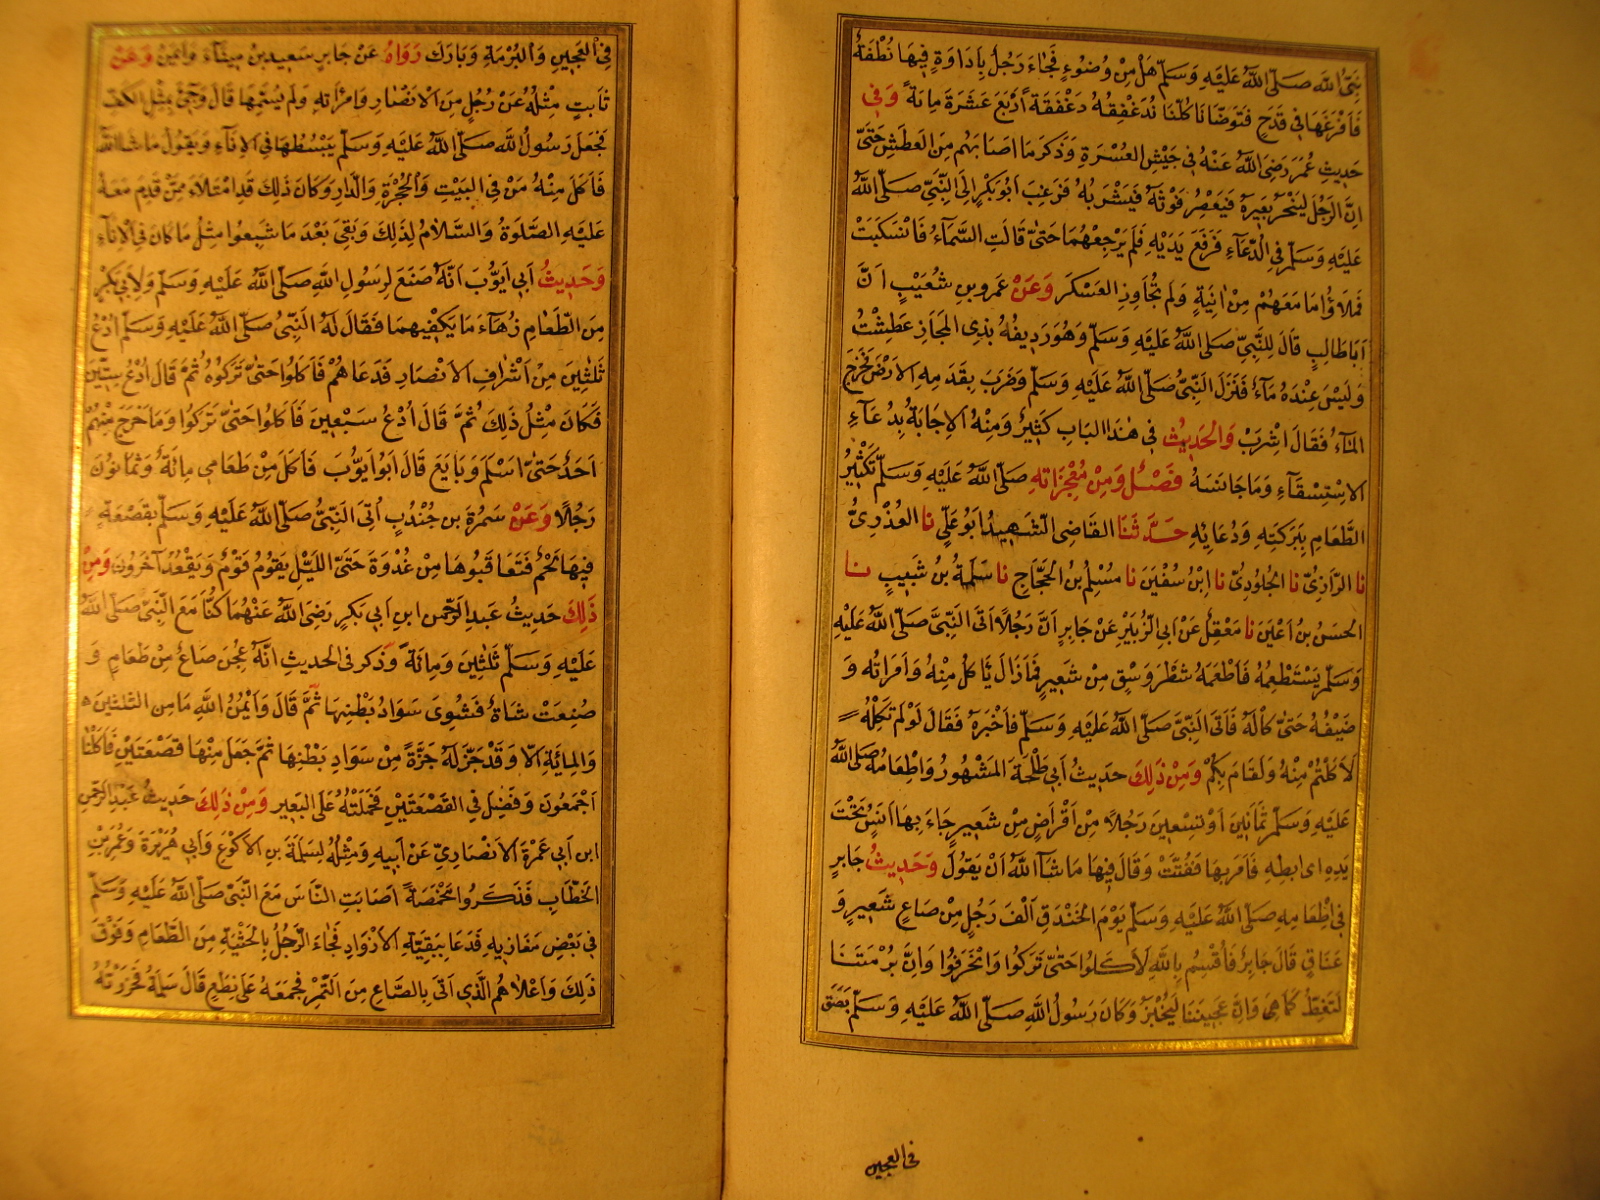 نَبِيُّ اللَّه صَلَّى اللَّهُ عَلَيْهِ وَسَلَّمَ هَلْ مِنْ وُضُوْءٍ فَجَاءَ رَجُلٌ بِاِدَاوَةٍ فِيْهَا نُطْفَةٌ
فَاَفْرَغَهَا فِي قَدَحٍ فَتَوَضَّأنَا كُلُّنَا نُدَغْفِقُهُ دَغْفَقَةً اَرْبَعَ عَشَرَةَ مِائَةً وَفِي
حَدِيثِ عُمَرَ رَضِيَ اللَّهُ عَنْهُ فِي جَيْشِ الْعُسْرَةِ وَذَكَرَ مَا اَصَابَهُم مِنَ الْعَطَشِ حَتَّى
اِنَّ الرَّجُلَ لَيَنْحَرُ بَعِيرَهُ فَيَعْصِرُ فَرْثَهُ فَيَشْرَبُهُ فَرَغِبَ اَبُوبَكْرٍ اِلَى النَّبِيِّ صَلَّى اللَّهُ
عَلَيْهِ وَسَلَّمَ فِي الدُّعَاءِ فَرَفَعَ يَدَيْهِ فَلَمْ يَرْجِعْهُمَا حَتَّى قَالَتِ السَّمَاءُ فَانْسَكَبَتْ
فَمَلَاؤُا مَا مَعَهُمْ مِنْ اٰنِيَةٍ وَلَم تُجَاوِزِ الْعَسْكَرَ وَعَنْ عَمروبنِ شُعَيْبٍ اَنَّ
اَبَاطَالِبٍ قَالَ لِلنَّبِيِّ صَلَّى اللَّهُ عَلَيْهِ وَسَلَّمَ وَهُوَ رَدِيفُهُ بِذِي الْمَجَازِ عَطِشْتُ
وَلَيْسَ عِنْدَهُ مَاءٌ فَنَزَلَ النَّبِيُّ صَلَّى اللَّهُ عَلَيْهِ وَسَلَّمَ وَضَرَبَ بِقَدَمِهِ الْاَرْضَ فَخَرَجَ
الْمَاءُ فَقَالَ اشْرَبْ وَالْحَدِيْثُ فِي هٰذَا الْبَابِ كَثِيرٌ وَمِنْهُ الْاِجَابَةُ بِدُعَاءِ
الْاِسْتِسْقَاءِ وَمَا جَانَسَهُ فَصْلٌ وَمِنْ مُعْجِزَاتِهِ صَلَّى اللَّهُ عَلَيْهِ وَسَلَّمَ تَكْثِيْرُ
الطَّعَامِ بِبَرَكَتِهِ وَدُعَائِهِ حَدَّثَنَا الْقَاضِي الشَّهِيدُ اَبُوعَلِيٍّ نا الْعُذْرِيُّ
نا الرَّازِيُّ نا الْجُلُودِيُّ نا ابْنُ سُفْيَنَ نا مُسْلِمُ بنُ الْحَجَّاجِ نا سَلَمَةُ بنُ شَبِيبٍ نا
الْحَسَنُ بنُ اَعْيَنَ نا مَعْقِلٌ عَنْ اَبِي الزُّبَيْرِ عَنْ جَابِرٍ اَنَّ رَجُلًا اَتَى النَّبِيَّ صَلَّى اللَّهُ عَلَيْهِ
وَسَلَّمَ يَسْتَطْعِمُهُ فَاَطْعَمَهُ شَطْرَ وَسْقٍ مِن شَعِيرٍ فَمَا زَالَ يَأكُلُ مِنْهُ وَامَرَاتُه وَ
ضَيْفُهُ حَتَّى كَالَهُ فَاَتَى النَّبِيَّ صَلَّى اللَّهُ عَلَيْهِ وَسَلَّمَ فَاَخْبَرَهُ فَقَالَ لَوْلَمْ تَكِلْهُ
لَاَكَلْتُمْ مِنْهُ وَلَقَامَ بِكُمْ وَمِنْ ذٰلِكَ حَدِيثُ اَبِي طَلْحَةَ الْمَشْهُورُ وَاِطْعَامُهُ صَلَّى اللَّهُ
عَلَيْهِ وَسَلَّمَ ثَمَانِينَ اَوْ تِسْعِينَ رَجُلًا مِنْ اَقْرَاصٍ مِنْ شَعِيرٍ جَاءَ بِهَا اَنَسٌ تَحْتَ
يَدِهِ اى اِبطِهِ فَاَمَرَ بِهَا فَفُتَّتْ وَقَالَ فِيهَا مَا شَاءَ اللَّهُ اَنْ يَقُولَ وَحَدِيثُ جَابِرٍ
فِي اِطْعَامِهِ صَلَّى اللَّهُ عَلَيْهِ وَسَلَّمَ يَوْمَ الْخَنْدَقِ اَلْفَ رَجُلٍ مِنْ صَاعِ شَعِيرٍ وَ
عَنَاقٍ قَالَ جَابِرٌ فَاُقْسِمُ بِاللَّهِ لَاَكَلُوا حَتَّى تَرَكُوا وَانْحَرَفُوا وَاِنَّ بُرْمَتَنَا
لَتَغِطُّ كَمَا هِيَ وَاِنَّ عَجِينَنَا لَيُخْبَزُ وَكَانَ رَسُولُ اللَّهِ صَلَّى اللَّهُ عَلَيْهِ وَسَلَّمَ بَصَقَ
في العجين
فِي الْعَجِينِ وَالْبُرْمَةِ وَبَارَكَ رَوَاهُ عَنْ جَابِرٍ سَعِيدبنُ مِينَاءَ وَاَيْمَنُ وَعَنْ
ثَابِتٍ مِثْلُهُ عَنْ رَجُلٍ مِنَ الْاَنْصَارِ وَامْرَاَتِهِ وَلَم يُسَمِّهِمَا قَالَ وَجِيْءَ بِمِثْلِ الْكَفِّ
فَجَعَلَ رَسُولُ اللَّهِ صَلَّى اللَّهُ عَلَيْهِ وَسَلَّمَ يَبْسُطُهَا فِي الْاِنَاءِ وَيَقُولُ مَا شَاءَ اللَّهُ
فَاَكَلَ مِنْهُ مَنْ فِي الْبَيْتِ وَالْحُجْرَةِ وَالدَّارِ وَكَانَ ذٰلِكَ قَدِ امْتَلَاَ مِمَّنْ قَدِمَ مَعَهُ
عَلَيْهِ الصَّلٰوةُ وَالسَّلَامُ لِذٰلِكَ وَبَقِيَ بَعْدَ مَا شَبِعُوا مِثْلُ مَا كَانَ فِي الْاِنَاءِ
وَحَدِيثُ اَبِي اَيُّوبَ اَنَّهُ صَنَعَ لِرَسُولِ اللَّهِ صَلَّى اللَّهُ عَلَيْهِ وَسَلَّمَ وَلِاَبِي بَكْرٍ
مِنَ الطَّعَامِ زُهَاءَ مَا يَكْفِيهِمَا فَقَالَ لَهُ النَّبِيُّ صَلَّى اللَّهُ عَلَيْهِ وَسَلَّمَ اُدْعُ
ثَلٰثِينَ مِنْ اَشْرَافِ الْاَنْصَارِ فَدَعَاهُمْ فَاَكَلُوا حَتَّى تَرَكُوهُ ثُمَّ قَالَ اُدْعُ سِتِّينَ
فَكَانَ مِثْلُ ذٰلِكَ ثُمَّ قَالَ اُدْعُ سَبْعِينَ فَاَكَلُوا حَتَّى تَرَكُوا وَمَا خَرَجَ مِنْهُمْ
اَحَدٌ حَتَّى اَسْلَمَ وَبَايَعَ قَالَ اَبُو اَيُّوبَ فَاَكَلَ مِنْ طَعَامِي مِائَةٌ وَثَمَانُونَ
رَجُلًا وَعَنْ سَمُرَةَ بنِ جُنْدُبٍ اُتِيَ النَّبِيُّ صَلَّى اللَّهُ عَلَيْهِ وَسَلَّمَ بِقَصْعَةٍ
فِيهَا لَحْمٌ فَتَعَاقَبُوهَا مِنْ غُدْوَةَ حَتَّى اللَّيْلِ يَقُومُ قَوْمٌ وَيَقْعُدُ آخَرُونَ وَمِنْ
ذٰلِكَ حَدِيثُ عَبدِ الرَّحْمٰنِ ابنِ اَبِي بَكرٍ رَضِيَ اللَّهُ عَنْهُمَا كُنَّا مَعَ النَّبِيِّ صَلَّى اللَّهُ
عَلَيْهِ وَسَلَّمَ ثَلٰثِينَ وَمِائَةً وَذَكر في الْحَدِيثِ اَنَّهُ عُجِنَ صَاعٌ مِنْ طَعَامٍ وَ
صُنِعَتْ شَاةٌ فَشُوِيَ سَوَادُ بَطْنِهَا ثُمَّ قَالَ وَاَيْمُنُ اللَّهِ مَا مِنَ الثَّلٰثِينَ
وَالْمِائَةِ اِلَّا وَقَدْ حَزَّ لَهُ حَزَّةً مِنْ سَوَادِ بَطْنِهَا ثُمَّ جَعَلَ مِنْهَا قَصْعَتَيْنِ فَاَكَلْنَا
اَجْمَعُونَ وَفَضِلَ فِي الْقَصْعَتَيْنِ فَحَمَلْتُهُ عَلَى الْبَعِيرِ وَمِنْ ذٰلِكَ حَدِيثُ عَبْدِ الرَّحْمٰنِ
ابنِ اَبِي عَمْرَةَ الْاَنْصَارِيِّ عَنْ اَبِيهِ وَمِثْلُهُ لِسَلَمَةَ بنِ الْاَكْوَعِ وَاَبِي هُرَيْرَةَ وَعُمَرَ بْنِ
الْخَطَّابِ فَذَكَرُوا مَخْمَصَةً اَصَابَتِ النَّاسَ مَعَ النَّبِيِّ صَلَّى اللَّهُ عَلَيْهِ وَسَلَّمَ
فِي بَعْضِ مَغَازِيهِ فَدَعَا بِبَقِيَّةِ الْاَزْوَادِ فَجَاءَ الرَّجُلُ بِالْحَثْيَةِ مِنَ الطَّعَامِ وَفَوْقَ
ذٰلِكَ وَاَعْلَاهُم الَّذِي اَتَى بِالصَّاعِ مِنَ التَّمْرِ فَجَمَعَهُ عَلَى نِطَعٍ قَالَ سَلَمَةُ فَحَزَرْتُهُ